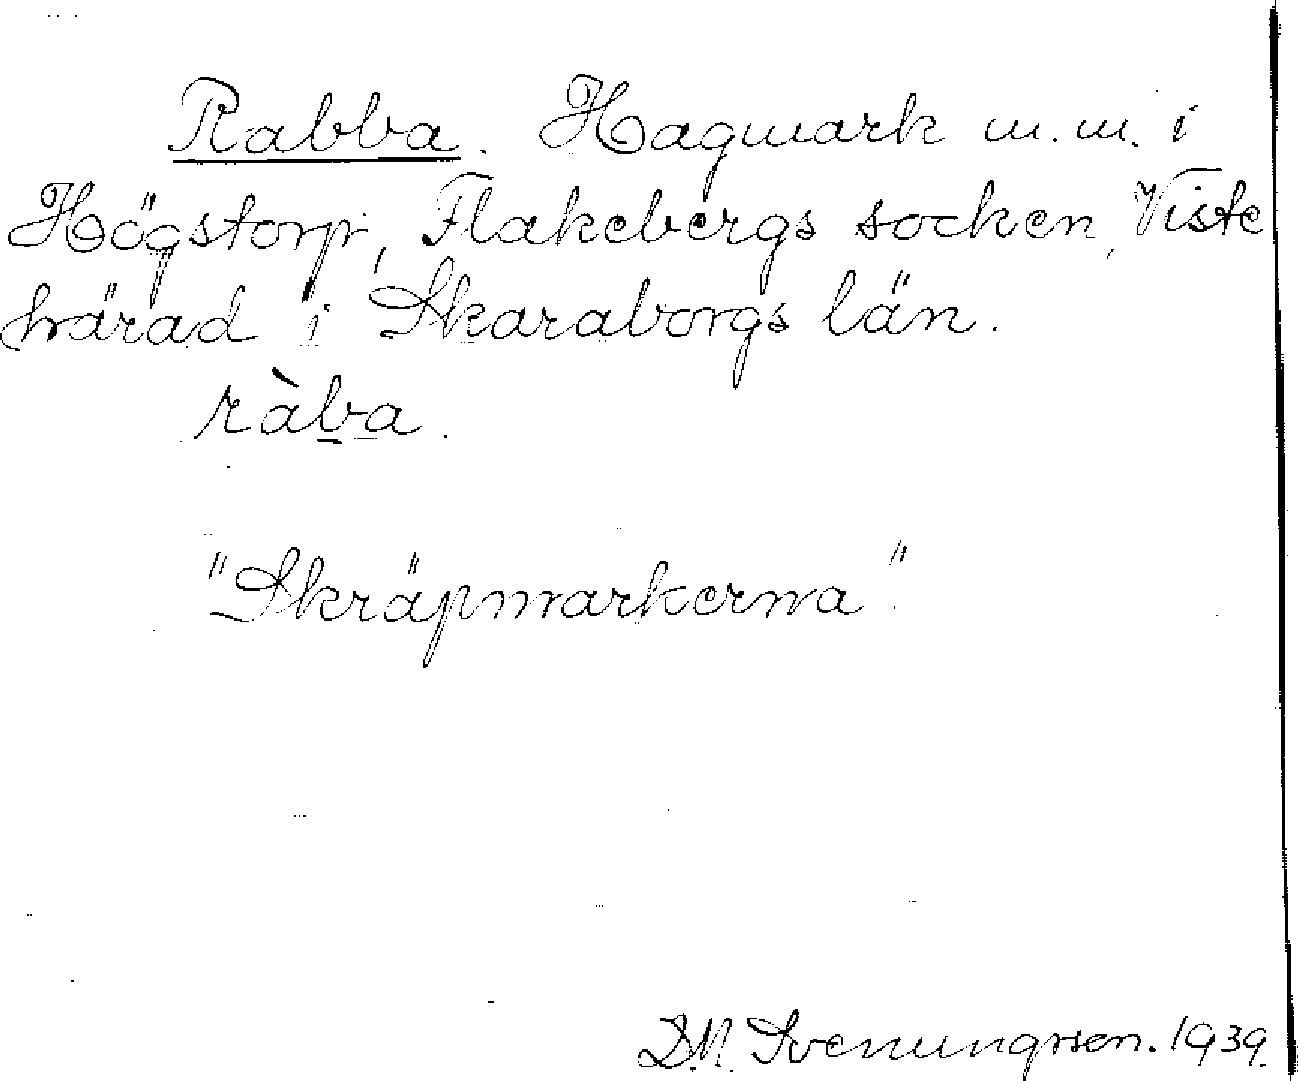 Rabba. Hagmark m.m. i
Högstorp, Flakebergs socken, Viste
härad i Skaraborgs län.
ràb̲a̲.
"Skräpmarkerna".
D.N. Svenungsson. 1939.